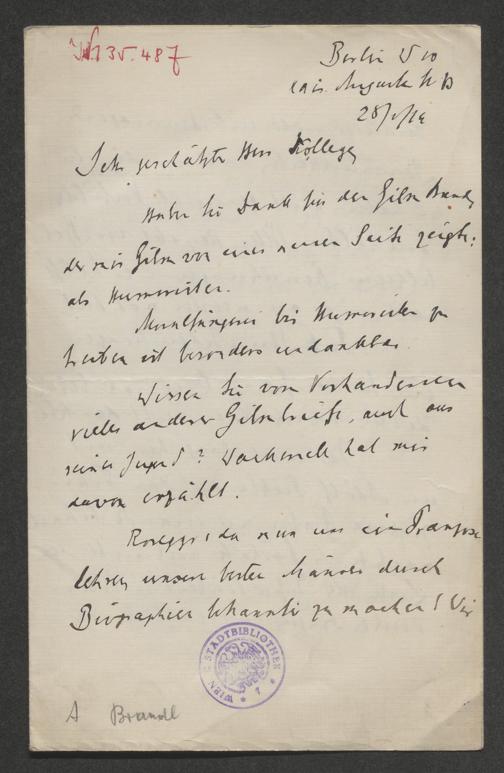 JN 135.487
Berlin W 10
Kais. Augusta St
Sehr geschätzter Herr Kollege,
Haben Sie Dank für den Gilm Band,
der mir Gilm von einer neuen Seite zeigte:
als Humoristen.
bei Humoristen zu
treiben ist besonders undankbar.
Wissen Sie vom Vorhandensein
vieler anderer Gilmbriefe, auch aus
seiner Jugend? Wackernell hat mir
davon erzählt.
Rosegger: da nun uns ein Franzose
lehren unsere besten Männer durch
Biographien bekannt zu machen! Wir
WIEN STADTBIBLIOTHEK
A Brandl